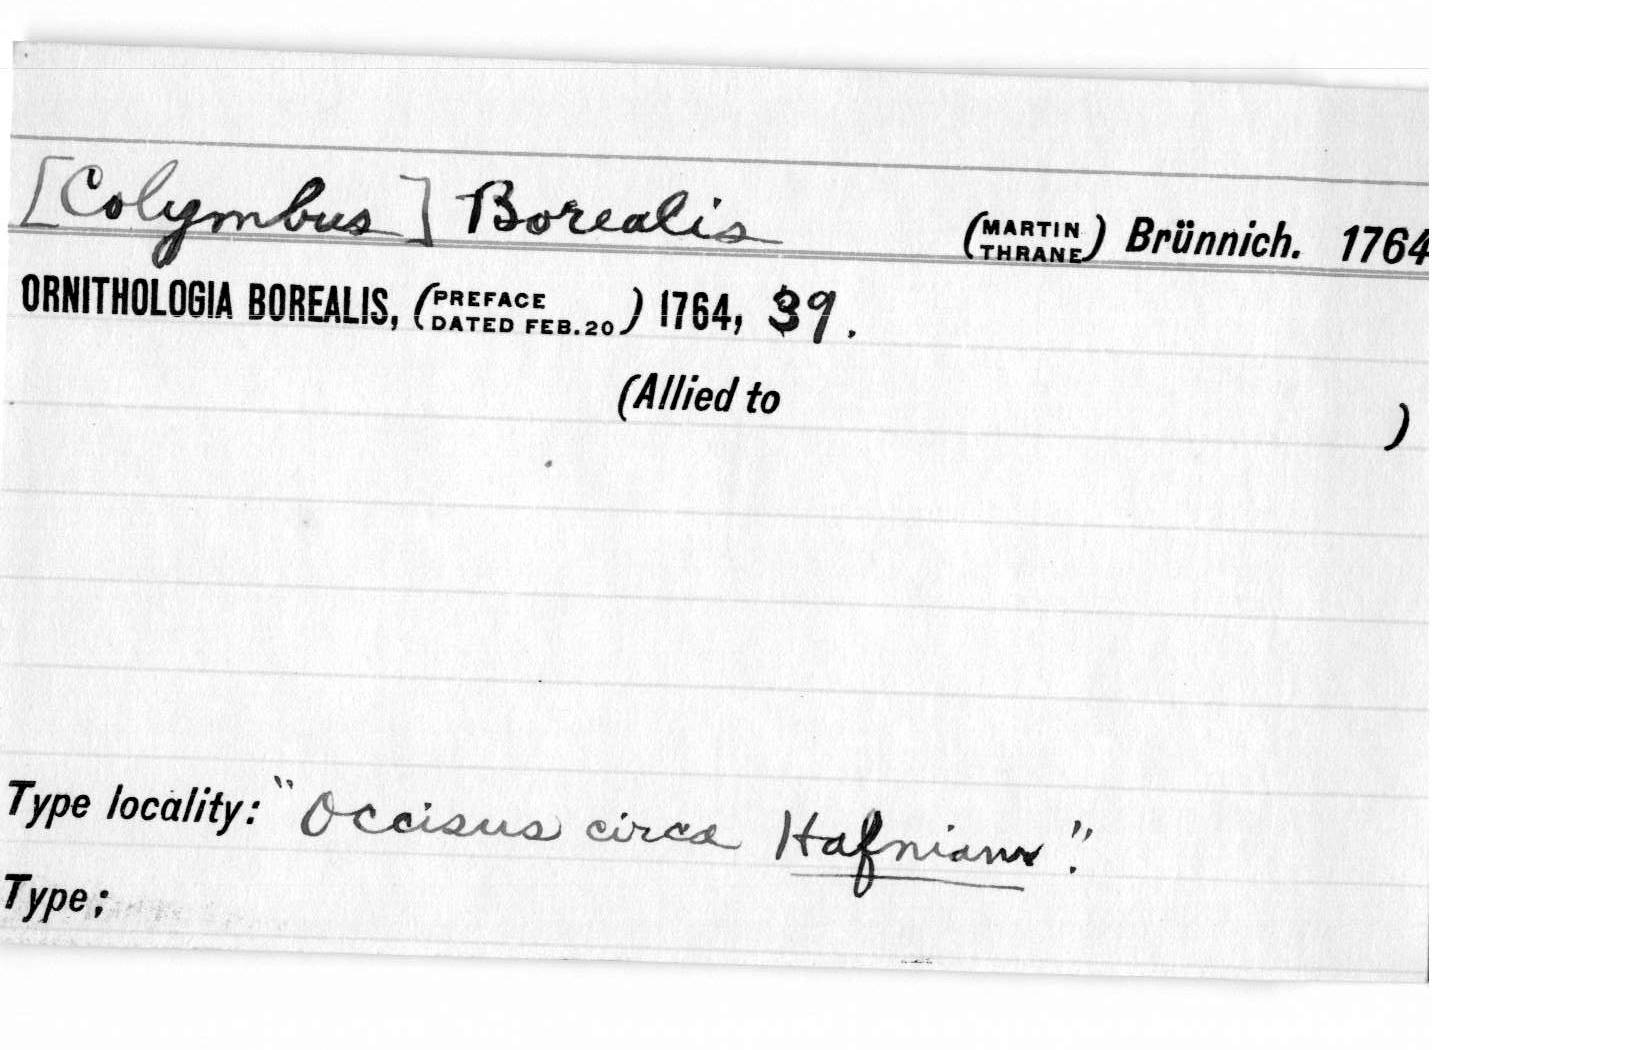 [Colymbus] Borealis (MARTIN THRANE) Brünnich. 1764
ORNITHOLOGIA BOREALIS, (PREFACE DATED FEB. 20) 1764, 39.
(Allied to )
Type locality: "Occisus circa Hafniam".
Type;